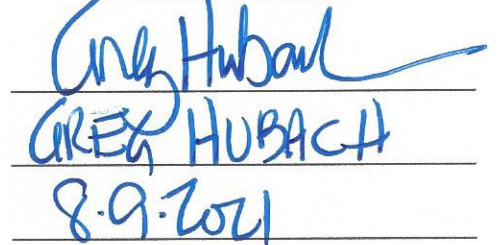 Greg Hubach
GREG HUBACH
8.9.2021